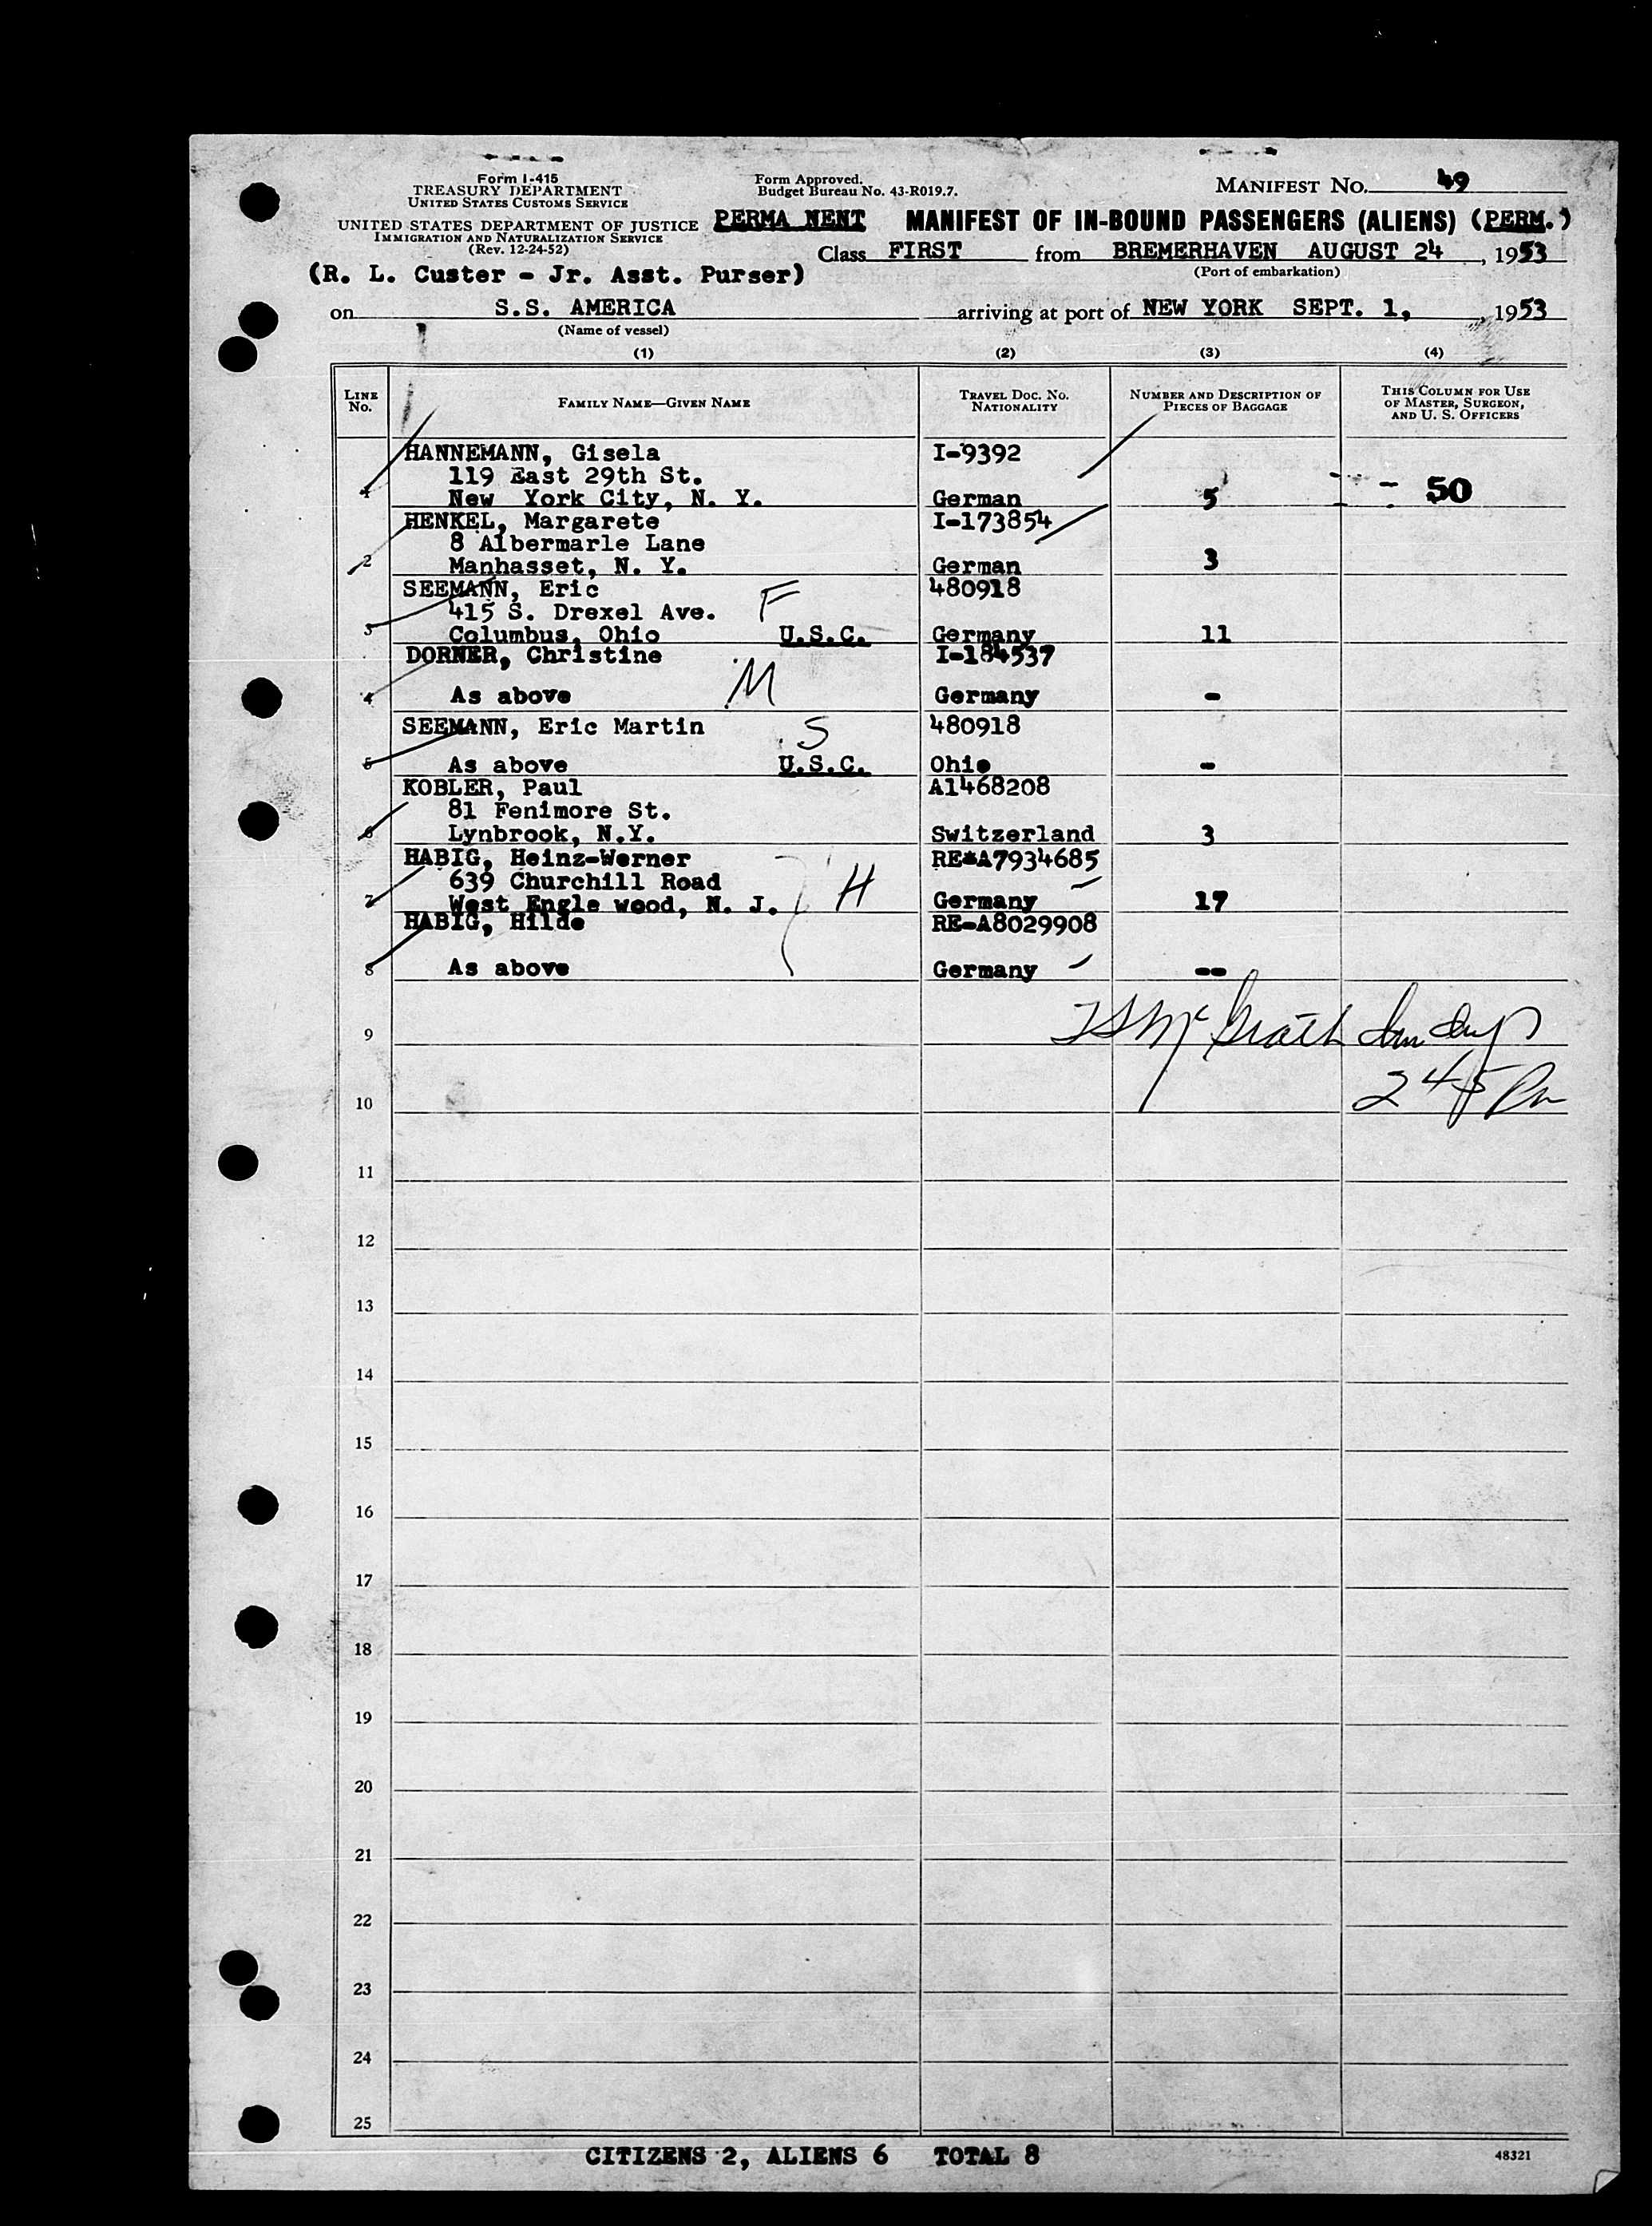 Form I-415
TREASURY DEPARTMENT
UNITED STATES CUSTOMS SERVICE
UNITED STATES DEPARTMENT OF JUSTICE
IMMIGRATION AND NATURALIZATION SERVICE
(Rev. 12-24-52)
Form Approved.
Budget Bureau No. 43-R019.7.
MANIFEST NO. 49
PERMA NENT MANIFEST OF IN-BOUND PASSENGERS (ALIENS) (PERM.)
Class FIRST from BREMERHAVEN AUGUST 24, 1953
(Port of embarkation)
(R. L. Custer - Jr. Asst. Purser)
on S.S. AMERICA arriving at port of NEW YORK SEPT. 1, , 1953
(Name of vessel)
(1) (2) (3) (4)
LINE NO. FAMILY NAME—GIVEN NAME TRAVEL DOC. NO. NATIONALITY NUMBER AND DESCRIPTION OF PIECES OF BAGGAGE THIS COLUMN FOR USE OF MASTER, SURGEON, AND U. S. OFFICERS
HANNEMANN, Gisela I-9392
119 East 29th St.
1 New York City, N. Y. German 5 - 50
HENKEL, Margarete I-173854
8 Albermarle Lane
2 Manhasset, N. Y. German 3
SEEMANN, Eric 480918
415 S. Drexel Ave. F
3 Columbus, Ohio U.S.C. Germany 11
DORNER, Christine I-184537
4 As above M Germany -
SEEMANN, Eric Martin S 480918
5 As above U.S.C. Ohio -
KOBLER, Paul A1468208
81 Fenimore St.
6 Lynbrook, N.Y. Switzerland 3
HABIG, Heinz-Werner RE*A7934685
639 Churchill Road H
7 West Engle wood, N. J. Germany 17
HABIG, Hilde RE-A8029908
8 As above Germany --
McGrath
9
245 Pm
10
11
12
13
14
15
16
17
18
19
20
21
22
23
24
25
CITIZENS 2, ALIENS 6 TOTAL 8
48321